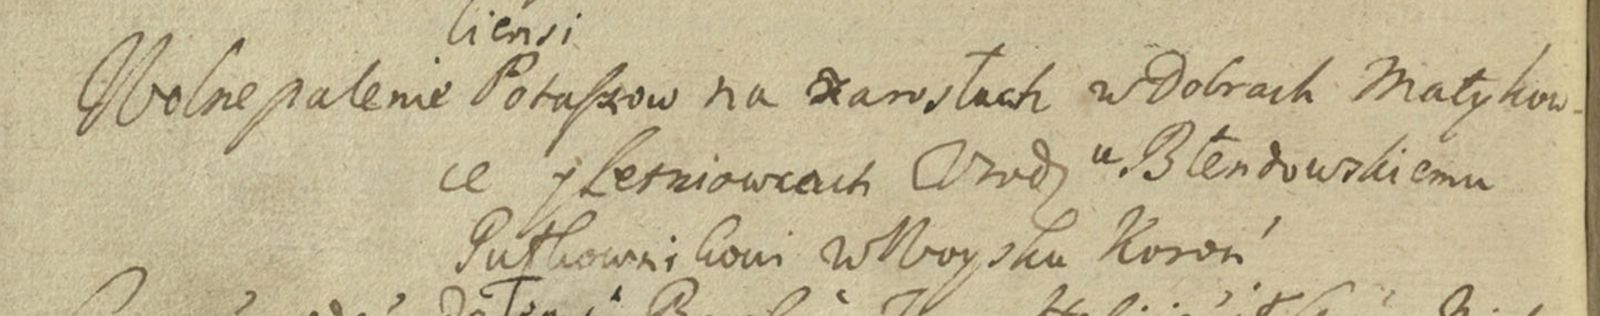 liensi
Wolne palenie Potaszow na zarostach w Dobrach Małykow-
ce y Lesniowcach Urodzu Błendowskiemu
Pułkownikowi w Woysku Koroń